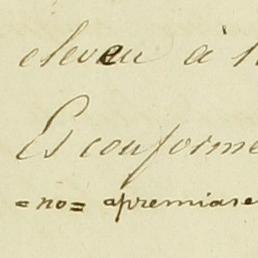 eleveu à
Es conforme
=no= apremiare